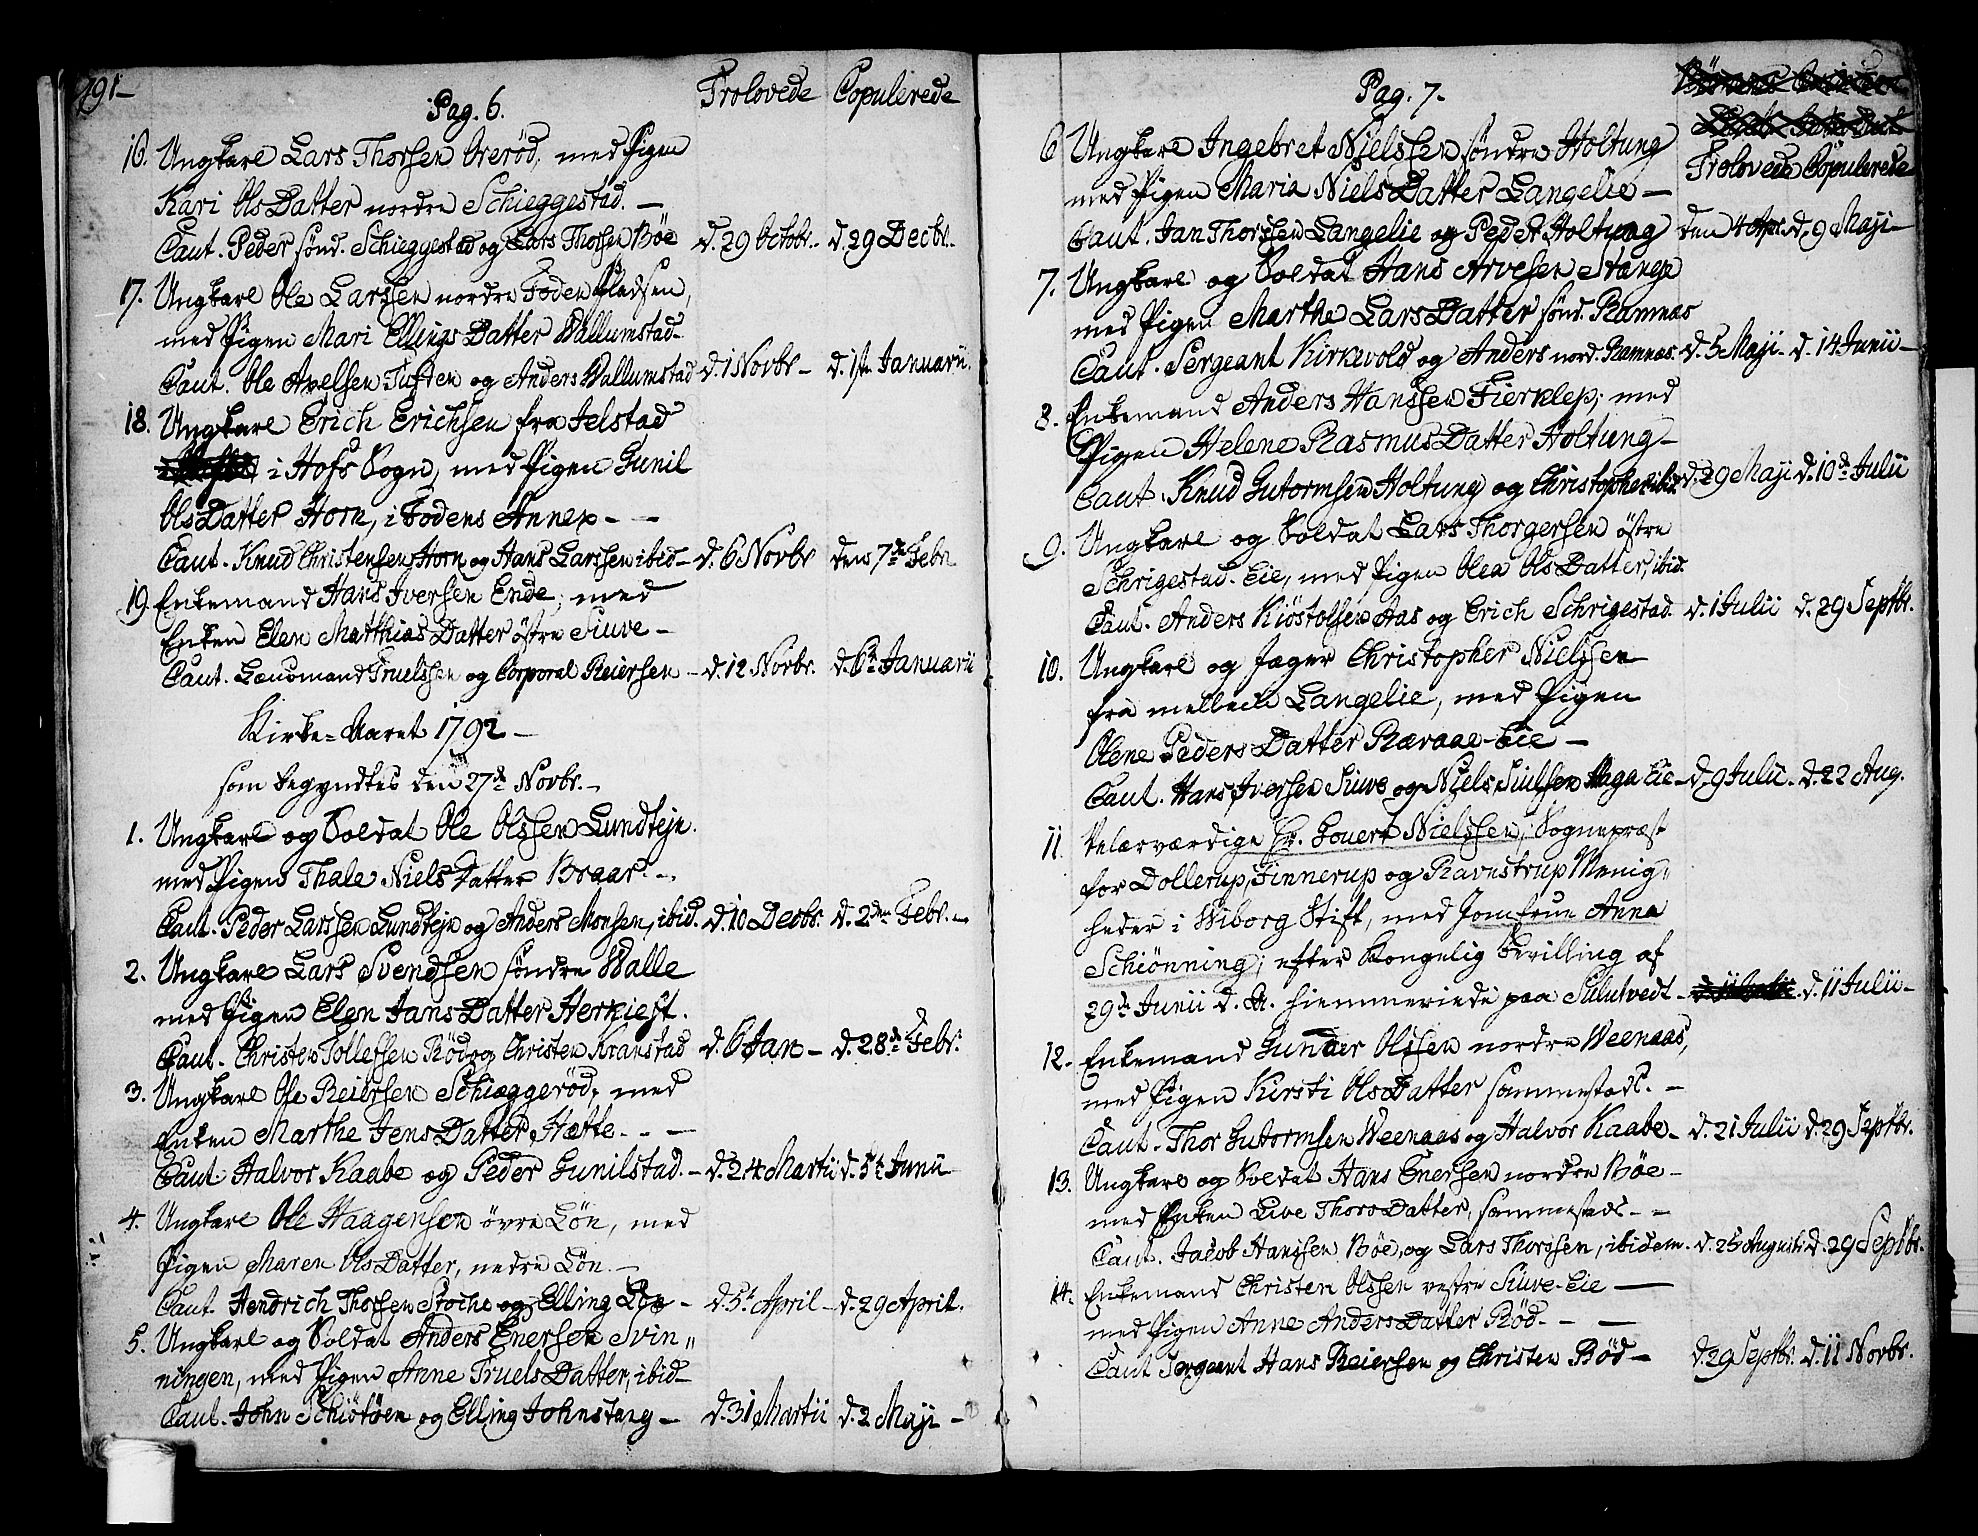 1791
Pag. 6.
Trolovede Copulerede
16. Ungkarl Lars Thorsen Orerød, med Pigen
Kari OlsDatter nordre Schieggestad. —
Caut. Peder sønd. Schieggestad og Lars Thorsen Bøe d. 29 Octobr. d. 29 Decbr.
17. Ungkarl Ole Larssen nordre Foden Pladsen,
med Pigen Mari EllingsDatter Wallumstad
Caut. Ole Axelsen Tuften og Anders Wallumstad d. 1 Novbr — d. 1ste Januarii.
18. Ungkarl Erich Erichsen fra Jelstad
i Hofs Sogn, med Pigen Gunil
OlsDatter Horn, i Fodens Annex — —
Caut. Knud Christensen Horn og Hans Larssen ibid — d. 6 Novbr den 7de Febr
19. Enkemand Hans Iversen Ende, med
Enken Elen MatthiasDatter østre Siuve —
Caut. Lensmand Truelssen og Corporal Reiersen — d. 12 Novbr. d. 6te Januarii
Kirke-Aaret 1792 —
som begyndtes den 27de Novbr. —
1. Ungkarl og Soldat Ole Olssen Lundtejn.
med Pigen Thale NielsDatter Braar. —
Caut. Peder Larssen Lundtejn og Anders Monsen, ibid. d. 10 Decbr. d. 2den Febr. —
2. Ungkarl Lars Svendsen søndre Walle
med Pigen Elen JansDatter Herkiest.
Caut. Christen Tollefsen Rød og Christen Kranstad d. 6 Jan — d. 28de Febr.
3. Ungkarl Ole Reiersen Schiæggerød, med
Enken Marthe JensDatter Hætte. — —
Caut. Halvor Kaabe og Peder Gunilstad. — d. 24 Martii d. 5te Junii
4. Ungkarl Ole Haagensen øvre Løn, med
Pigen Maren OlsDatter, nedre Løn. —
Caut. Hendrich Thorsen Stoche og Elling Løn — d. 5te April — d. 29 April.
5. Ungkarl og Soldat Anders Enersen Svin„
ningen, med Pigen Anne TruelsDatter, ibid —
Caut. John Schiøtøen og Elling Johnstang — d. 31 Martii d. 2 Maji —
Pag. 7.
Trolovede Copulerede
6 Ungkarl Ingebret Nielssen søndre Holtung
med Pigen Maria NielsDatter Langelie —
Caut. Jan Thorssen Langelie og Peder Holtung den 4 Apr. d. 9 Maji —
7. Ungkarl og Soldat Hans Arvesen Stange
med Pigen Marthe LarsDatter sønd. Ramnæs
Caut. Sergeant Kirkevold og Anders nord. Ramnæs. d. 5 Maji d. 14 Junii —
8. Enkemand Anders Hanssen Fierklep, med
Pigen Helene RasmusDatter Holtung —
Caut. Knud Gutormsen Holtung og Christopher ibid. d. 29 Maji d. 10de Julii
9. Ungkarl og Soldat Lars Thorgersen østre
Schrigestad-Eie, med Pigen Olea OlsDatter, ibid.
Caut. Anders Kiøstolsen Aas og Erich Schrigestad. d. 1 Julii d. 29 Septbr.
10. Ungkarl og Jæger Christopher Nielssen
fra mellem Langelie, med Pigen
Olene PedersDatter Revaae-Eie —
Caut. Hans Iversen Siuve og Niels Siulsen Haga Eie — d. 9 Julii d. 22 Aug.
11 Velærværdige Hr. Govert Nielssen, Sognepræst
for Dollerup, Finnerup og Ravnstrup Menig„
heder i Wiborg Stift, med Jomfrue Anna
Schiønning; efter Kongelig Bevilling af
29de Junii d. A. hiemmeviede paa Sulutvedt — d. 11 Julii —
12. Enkemand Gunder Olssen nordre Weenaas,
med Pigen Kirsti OlsDatter sammestads. —
Caut. Thor Gutormsen Weenaas og Halvor Kaabe — d. 21 Julii d. 29 Septbr.
13. Ungkarl og Soldat Hans Enersen nordre Bøe —
med Enken Live ThorsDatter, sammestads — —
Caut. Jacob Hanssen Bøe, og Lars Thorssen, ibidem. d. 25 Augusti d. 29 Septbr.
14. Enkemand Christen Olssen vestre Siuve-Eie —
med Pigen Anne AndersDatter Rød — —
Caut Sergeant Hans Reiersen og Christen Rød — d. 29 Septbr. d. 11 Novbr.